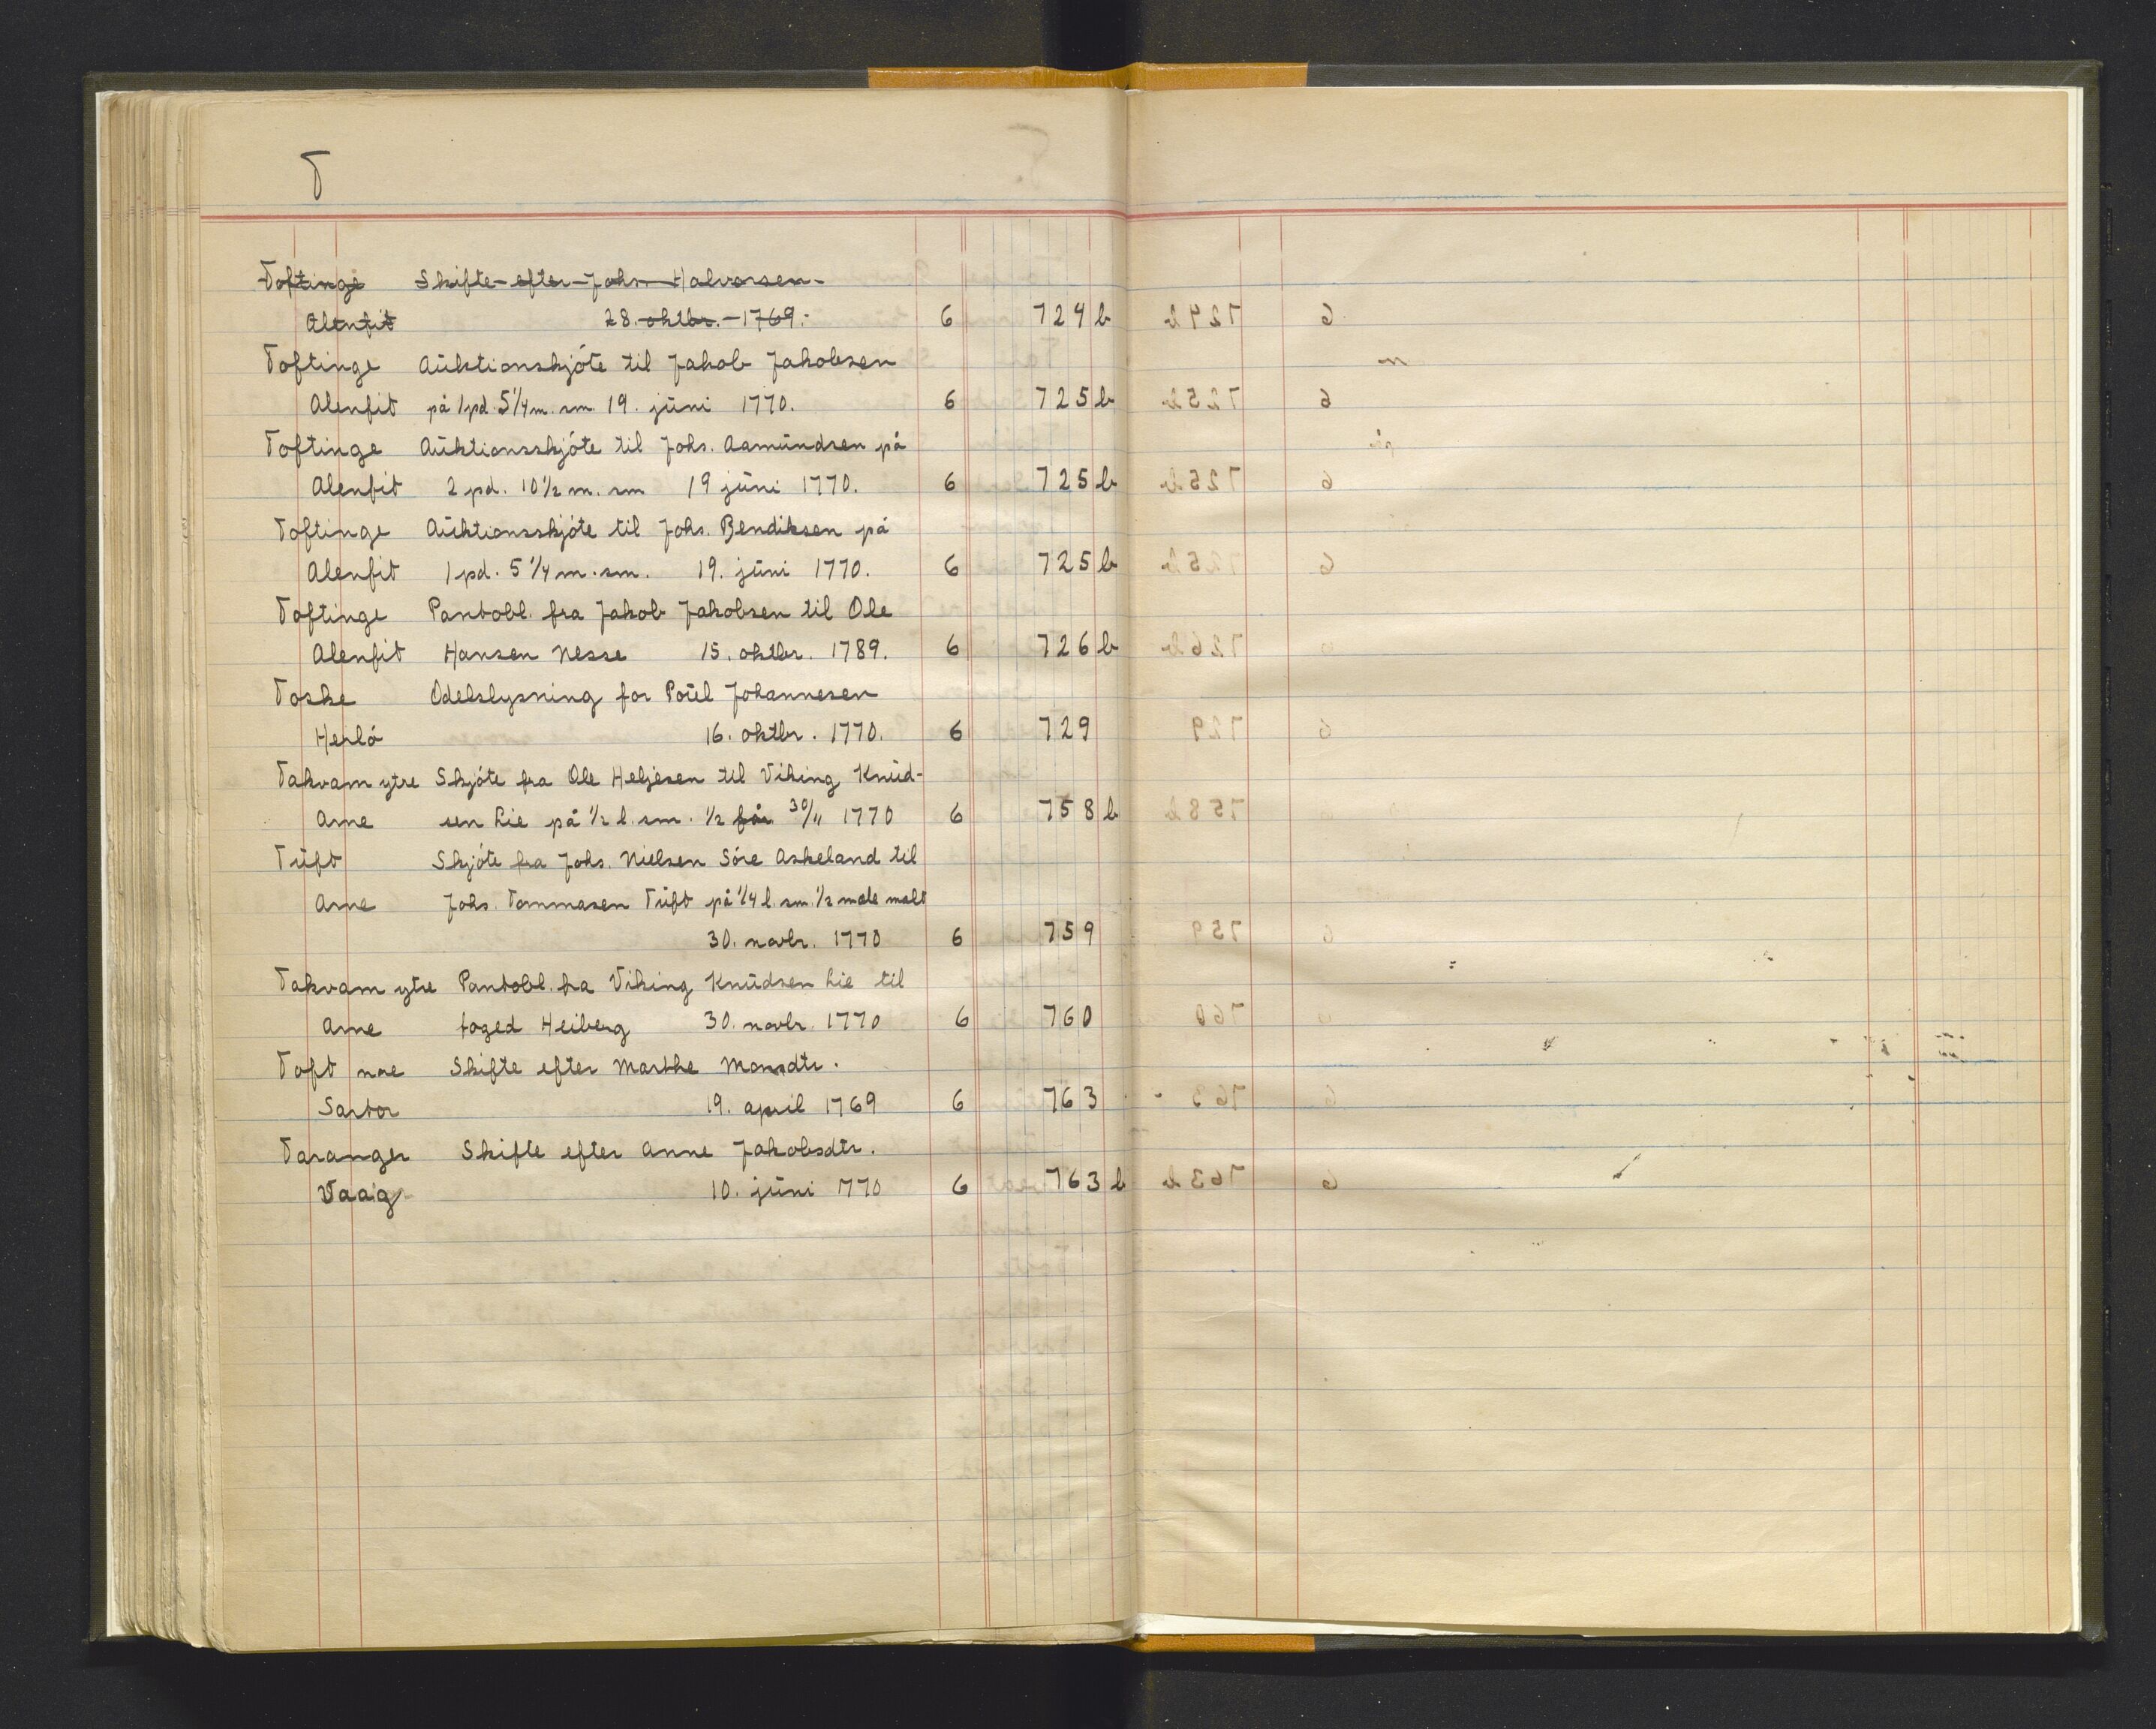 T
Toftinge Skifte efter Johs. Halvorsen
Alenfit 28. oktbr. 1769. 6 724 b
Toftinge Auktionskjöte til Jakob Jakobsen
Alenfit på 1 pd. 5 1/4 m. sm. 19. juni 1770. 6 725 b
Toftinge Auktionsskjöte til Johs. Aamundsen på
Alenfit 2 pd. 10 1/2 m. sm 19 juni 1770. 6 725 b
Toftinge Auktionsskjöte til Johs. Bendiksen på
Alenfit 1 pd. 5 1/4 m. sm. 19. juni 1770. 6 725 b
Toftinge Pantobl. fra Jakob Jakobsen til Ole
Alenfit Hansen Nesse 15. oktbr. 1789. 6 726 b
Toske Odelslysning for Poul Johannesen
Herlö 16. oktbr. 1770. 6 729
Takvam ytre Skjöte fra Ole Heljesen til Viking Knud-
Arne sen Lie på 1/2 l. sm. 1/2 får 30/11 1770 6 758 b
Tuft Skjöte fra Johs. Nielsen Söre Askeland til
Arne Johs. Tommasen Tuft på 1/4 l. sm. 1/2 mele malt
30. novbr. 1770 6 759
Takvam ytre Pantobl. fra Viking Knudsen Lie til
Arne foged Heiberg 30. novbr. 1770 6 760
Toft noe Skifte efter Marthe Monsdtr.
Sartor 19. april 1769 6 763
Taranger Skifte efter Anne Jakobsdtr.
Vaag 10. juni 1770 6 763 b